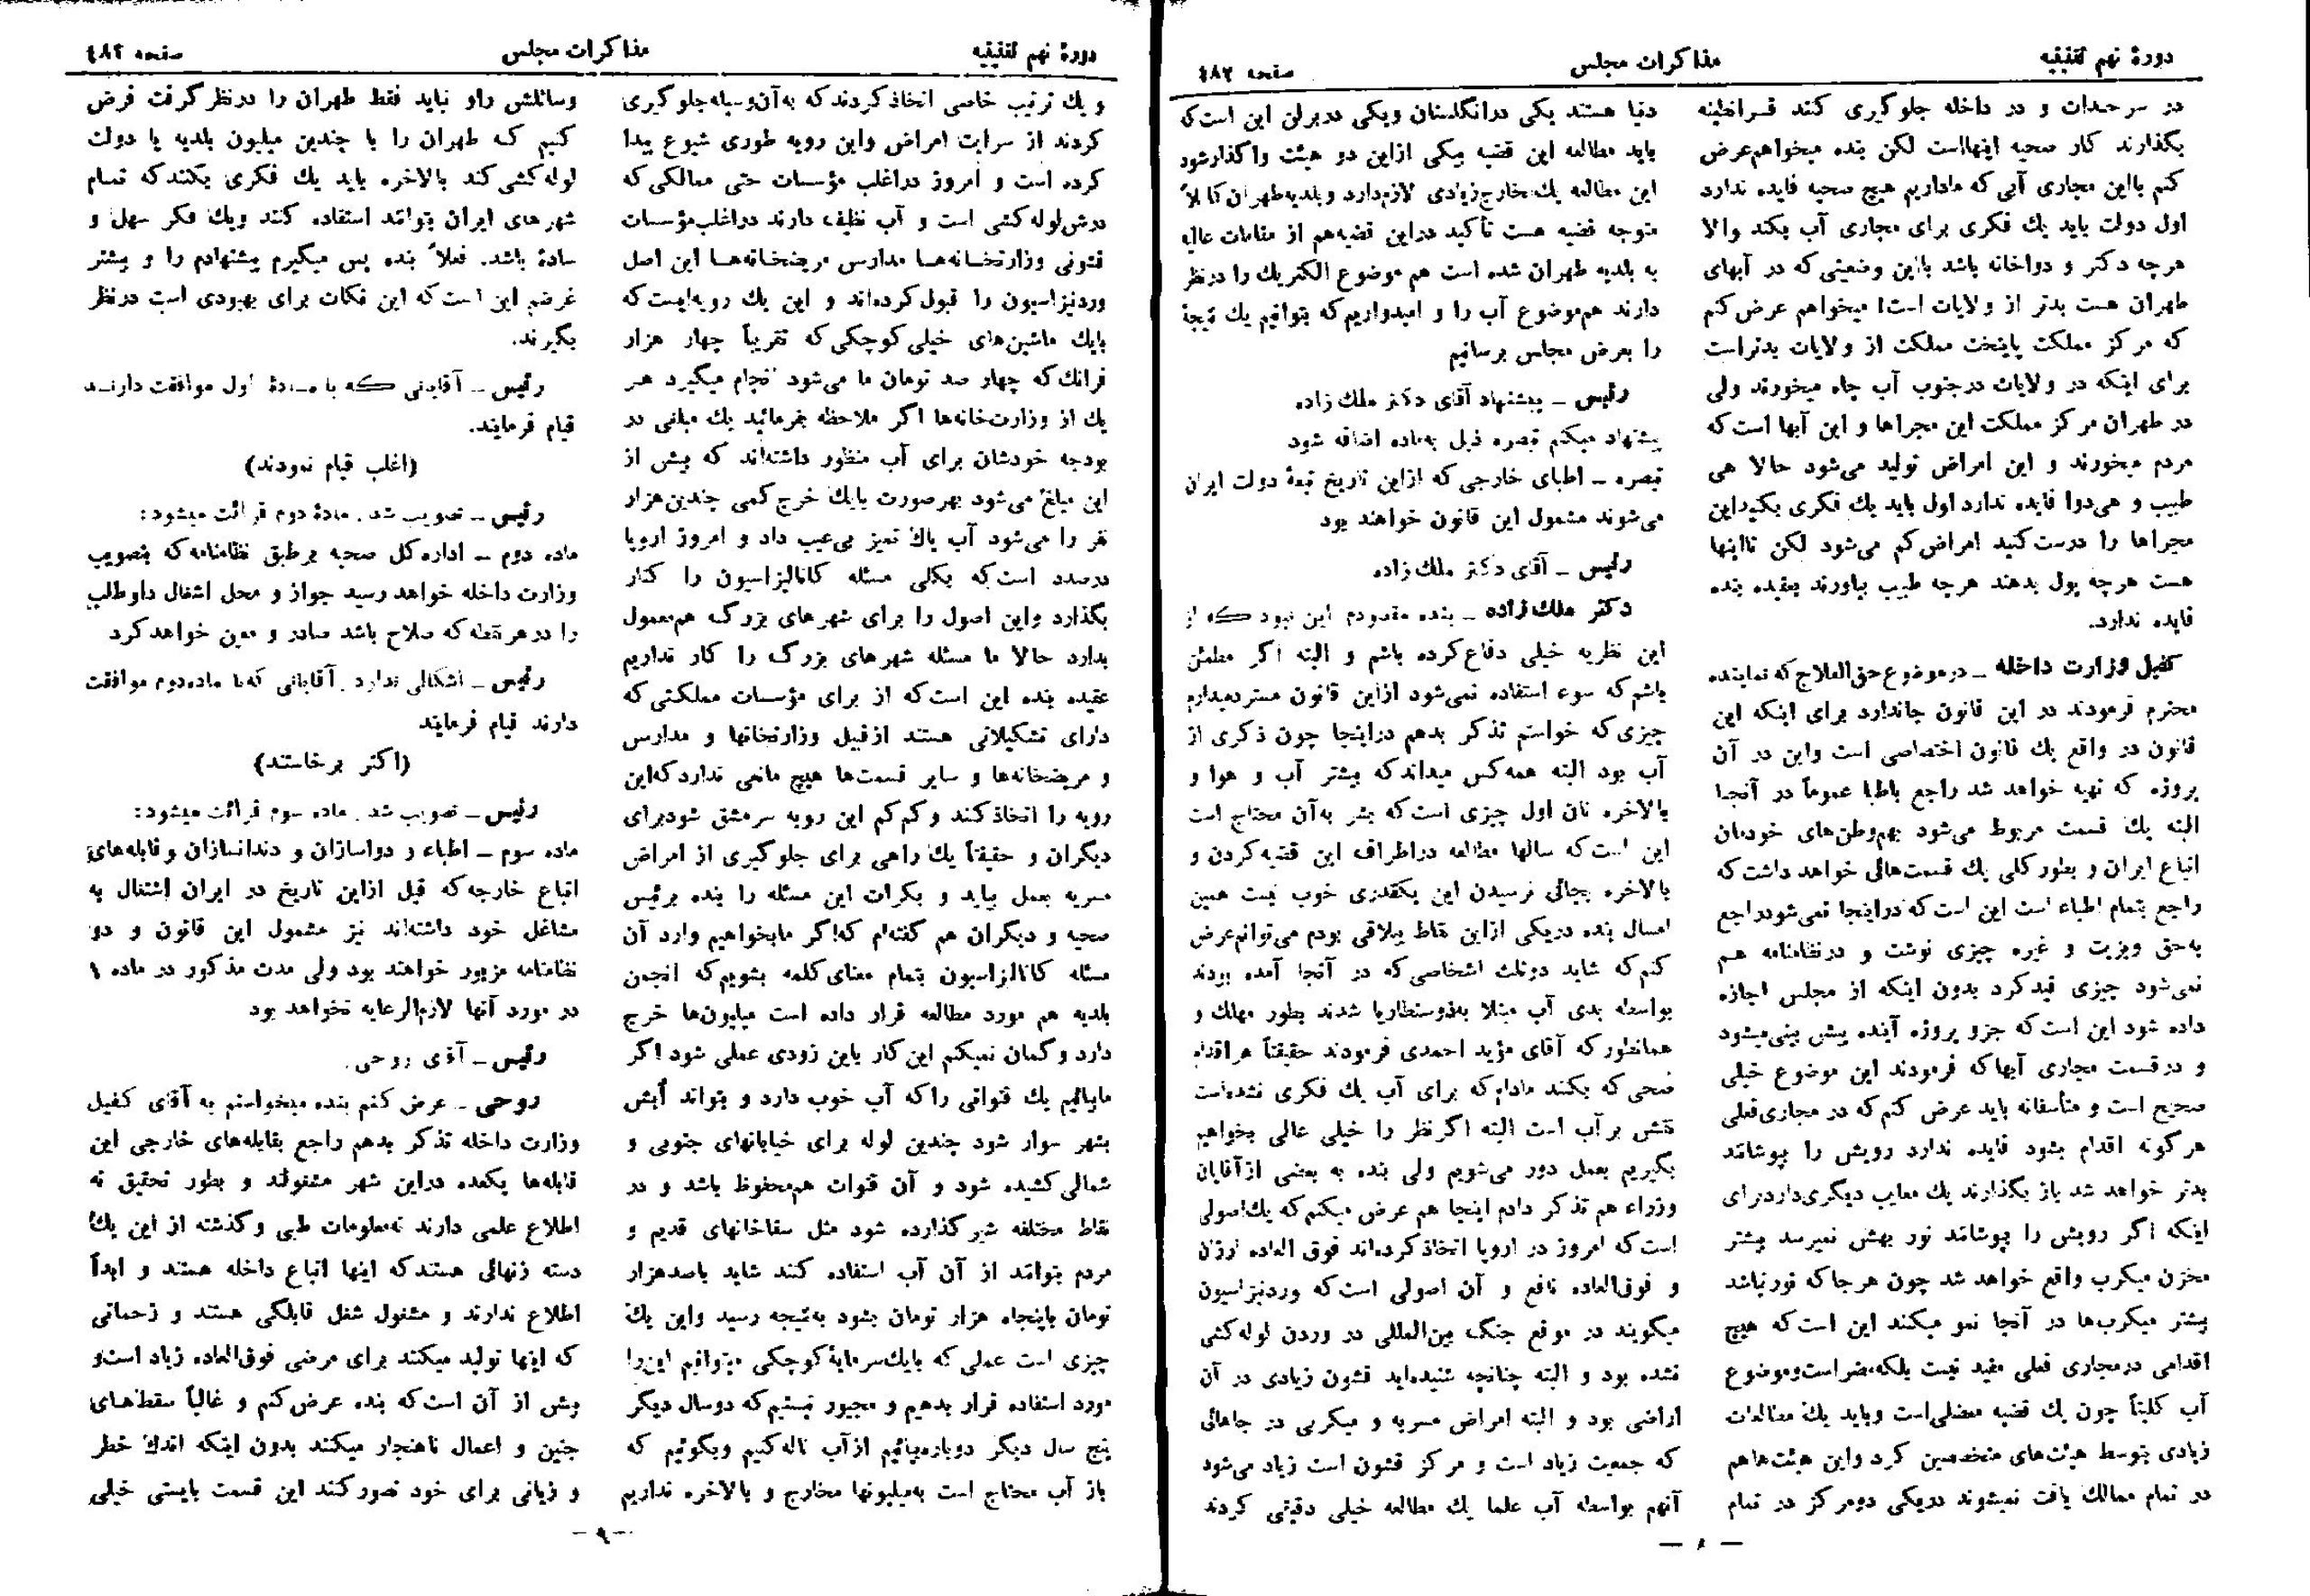 دورهٔ نهم تقنینیه
مذاکرات مجلس
صفحه ٤٨٢
در سرحدات و در داخله جلوگیری کنند قرانطینه
بگذارند کار صحیه اینهااست لکن بنده میخواهم‌عرض
کنم بااین مجاری آبی که ماداریم هیچ صحیه فایده ندارد
اول دولت باید یك فکری برای مجاری آب بکند والا
هرچه دکتر و دواخانه باشد بااین وضعیتی که در آبهای
طهران هست بدتر از ولایات است! میخواهم عرض کنم
که مرکز مملکت پایتخت مملکت از ولایات بدتراست
برای اینکه در ولایات درجنوب آب چاه میخورند ولی
در طهران مرکز مملکت این مجراها و این آبها است که
مردم میخورند و این امراض تولید می‌شود حالا هی
طبیب و هی‌دوا فایده ندارد اول باید یك فکری بکنیداین
مجراها را درست کنید امراض‌کم می‌شود لکن تااینها
هست هرچه پول بدهند هرچه طبیب بیاورند بعقیده بنده
فایده ندارد.
کفیل وزارت داخله ـ درموضوع حق‌العلاج که نماینده
محترم فرمودند در این قانون جاندارد برای اینکه این
قانون در واقع یك قانون اختصاصی است واین در آن
پروژه که تهیه خواهد شد راجع باطبا عموماً در آنجا
البته یك قسمت مربوط می‌شود بهم‌وطن‌های خودمان
اتباع ایران و بطور کلی یك قسمت‌هائی خواهد داشت که
راجع بتمام اطباء است این است که دراینجا نمی‌شودراجع
به‌حق ویزیت و غیره چیزی نوشت و درنظامنامه هم
نمی‌شود چیزی قید کرد بدون اینکه از مجلس اجازه
داده شود این است که جزو پروژه آینده پیش بینی‌میشود
و درقسمت مجاری آبها که فرمودند این موضوع خیلی
صحیح است و متأسفانه باید عرض کنم که در مجاری‌فعلی
هرگونه اقدام بشود فایده ندارد رویش را بپوشانند
بدتر خواهد شد باز بگذارند یك معایب دیگری‌داردبرای
اینکه اگر رویش را بپوشانند نور بهش نمیرسد بیشتر
مخزن میکرب واقع خواهد شد چون هرجا که نورنباشد
بیشتر میکرب‌ها در آنجا نمو میکند این است که هیچ
اقدامی درمجاری فعلی مفید نیست بلکه‌مضراست‌وموضوع
آب کلیتاً چون یك قضیه معضلی‌است وباید یك مطالعات
زیادی بتوسط هیئت‌های متخصصین کرد واین هیئت‌هاهم
در تمام ممالك یافت نمیشوند دریکی دومرکز در تمام
دنیا هستند یکی درانگلستان ویکی دربرلن این است‌که
باید مطالعه این قضیه بیکی ازاین دو هیئت واگذارشود
این مطالعه یك‌مخارج‌زیادی لازم‌دارد وبلدیه‌طهران کاملاً
متوجه قضیه هست تأکید دراین قضیه‌هم از مقامات عالیه
به بلدیه طهران شده است هم موضوع الکتریك را درنظر
دارند هم‌موضوع آب را و امیدواریم‌که بتوانیم یك نتیجهٔ
را بعرض مجلس برسانیم
رئیس ـ پیشنهاد آقای دکتر ملك زاده
پیشنهاد میکنم تبصره ذیل به‌ماده اضافه شود
تبصره ـ اطبای خارجی که ازاین تاریخ تبعهٔ دولت ایران
می‌شوند مشمول این قانون خواهند بود
رئیس ـ آقای دکتر ملك زاده
دکتر ملك زاده ـ بنده مقصودم این نبود که از
این نظریه خیلی دفاع‌کرده باشم و البته اگر مطمئن
باشم‌که سوء استفاده نمی‌شود ازاین قانون مستردمیدارم
چیزی‌که خواستم تذکر بدهم دراینجا چون ذکری از
آب بود البته همه‌کس میداندکه بیشتر آب و هوا و
بالاخره نان اول چیزی است که بشر به‌آن محتاج است
این است‌که سالها مطالعه دراطراف این قضیه‌کردن و
بالاخره بجائی نرسیدن این یکقدری خوب نیست همین
امسال بنده دریکی ازاین نقاط ییلاقی بودم می‌توانم‌عرض
کنم‌که شاید دوثلث اشخاصی‌که در آنجا آمده بودند
بواسطه بدی آب مبتلا به‌ذوسنطاریا شدند بطور مهلك و
همانطورکه آقای مؤید احمدی فرمودند حقیقتاً هراقدام
صحی‌که بکنند مادام‌که برای آب یك فکری نشده‌است
نقش برآب است البته اگرنظر را خیلی عالی بخواهیم
بگیریم بعمل دور می‌شویم ولی بنده به بعضی ازآقایان
وزراء هم تذکر دادم اینجا هم عرض میکنم‌که یك‌اصولی
است‌که امروز در اروپا اتخاذکرده‌اند فوق العاده ارزان
و فوق‌العاده نافع و آن اصولی است‌که وردنیزاسیون
میگویند در موقع جنگ بین‌المللی در وردن لوله‌کشی
نشده بود و البته چنانچه شنیده‌اید قشون زیادی در آن
اراضی بود و البته امراض مسریه و میکربی در جاهائی
که جمعیت زیاد است و مرکز قشون است زیاد می‌شود
آنهم بواسطه آب علما یك مطالعه خیلی دقیقی کردند
— ٨ —
دورهٔ نهم تقنینیه
مذاکرات مجلس
صفحه ٤٨٢
و یك ترتیب خاصی اتخاذکردندکه به‌آن‌وسیله‌جلوگیری
کردند از سرایت امراض واین رویه طوری شیوع پیدا
کرده است و امروز دراغلب مؤسسات حتی ممالکی‌که
درش‌لوله‌کشی است و آب نظیف دارند دراغلب‌مؤسسات
قشونی وزارتخانه‌ها مدارس مریضخانه‌ها این اصل
وردنیزاسیون را قبول‌کرده‌اند و این یك رویه‌ایست‌که
بایك ماشین‌های خیلی‌کوچکی‌که تقریباً چهار هزار
فرانك‌که چهار صد تومان ما می‌شود انجام میگیرد هر
یك از وزارت‌خانه‌ها اگر ملاحظه بفرمائید یك مبلغی در
بودجه خودشان برای آب منظور داشته‌اند که بیش از
این مبلغ می‌شود بهرصورت بایك خرج کمی چندین‌هزار
نفر را می‌شود آب پاك تمیز بی‌عیب داد و امروز اروپا
درصدد است‌که بکلی مسئله کانالیزاسیون را کنار
بگذارد واین اصول را برای شهرهای بزرگ هم‌معمول
بدارد حالا ما مسئله شهرهای بزرگ را کار نداریم
عقیده بنده این است‌که از برای مؤسسات مملکتی‌که
دارای تشکیلاتی هستند ازقبیل وزارتخانها و مدارس
و مریضخانه‌ها و سایر قسمت‌ها هیچ مانعی نداردکه‌این
رویه را اتخاذ کنند و کم‌کم این رویه سرمشق شودبرای
دیگران و حقیقتاً یك راهی برای جلوگیری از امراض
مسریه بعمل بیاید و بکرات این مسئله را بنده برئیس
صحیه و دیگران هم گفته‌ام که‌اگر مابخواهیم وارد آن
مسئله کانالیزاسیون بتمام معنای‌کلمه بشویم‌که انجمن
بلدیه هم مورد مطالعه قرار داده است میلیون‌ها خرج
دارد و گمان نمیکنم این کار باین زودی عملی شود اگر
مابیائیم یك قنواتی راکه آب خوب دارد و بتواند آبش
بشهر سوار شود چندین لوله برای خیابانهای جنوبی و
شمالی کشیده شود و آن قنوات هم‌محفوظ باشد و در
نقاط مختلفه شیر گذارده شود مثل سقاخانهای قدیم و
مردم بتوانند از آن آب استفاده کنند شاید باصدهزار
تومان باپنجاه هزار تومان بشود به‌نتیجه رسید واین یك
چیزی است عملی که بایك‌سرمایهٔ‌کوچکی میتوانیم این‌را
مورد استفاده قرار بدهیم و مجبور نیستیم‌که دوسال دیگر
پنج سال دیگر دوباره‌بیائیم ازآب ناله کنیم وبگوئیم که
باز آب محتاج است به‌میلیونها مخارج و بالاخره نداریم
وسائلش راو نباید فقط طهران را درنظر گرفت فرض
کنیم که طهران را با چندین میلیون بلدیه یا دولت
لوله‌کشی‌کند بالاخره باید یك فکری بکنندکه تمام
شهرهای ایران بتوانند استفاده کنند ویك فکر سهل و
سادهٔ باشد. فعلاً بنده پس میگیرم پیشنهادم را و بیشتر
غرضم این است‌که این نکات برای بهبودی است درنظر
بگیرند.
رئیس ـ آقایانی که با مادهٔ اول موافقت دارند
قیام فرمایند.
(اغلب قیام نمودند)
رئیس ـ تصویب شد. مادهٔ دوم قرائت میشود:
ماده دوم ـ اداره‌کل صحیه برطبق نظامنامه‌که بتصویب
وزارت داخله خواهد رسید جواز و محل اشتغال داوطلب
را درهرنقطه‌که صلاح باشد صادر و معین خواهدکرد
رئیس ـ اشکالی ندارد. آقایانی که‌با ماده‌دوم موافقت
دارند قیام فرمایند
(اکثر برخاستند)
رئیس ـ تصویب شد. ماده سوم قرائت میشود:
ماده سوم ـ اطباء و دواسازان و دندانسازان و قابله‌های
اتباع خارجه‌که قبل ازاین تاریخ در ایران اشتغال به
مشاغل خود داشته‌اند نیز مشمول این قانون و دو
نظامنامه مزبور خواهند بود ولی مدت مذکور در ماده ١
در مورد آنها لازم‌الرعایه نخواهد بود
رئیس ـ آقای روحی.
روحی ـ عرض کنم بنده میخواستم به آقای کفیل
وزارت داخله تذکر بدهم راجع بقابله‌های خارجی این
قابله‌ها یکعده دراین شهر مشغولند و بطور تحقیق نه
اطلاع علمی دارند نه‌معلومات طبی و گذشته از این یك
دسته زنهائی هستندکه اینها اتباع داخله هستند و ابداً
اطلاع ندارند و مشغول شغل قابلگی هستند و زحماتی
که اینها تولید میکنند برای مرضی فوق‌العاده زیاد است‌و
بیش از آن است‌که بنده عرض‌کنم و غالباً سقط‌های
جنین و اعمال ناهنجار میکنند بدون اینکه اندك خطر
و زیانی برای خود تصورکنند این قسمت بایستی خیلی
— ٩ —